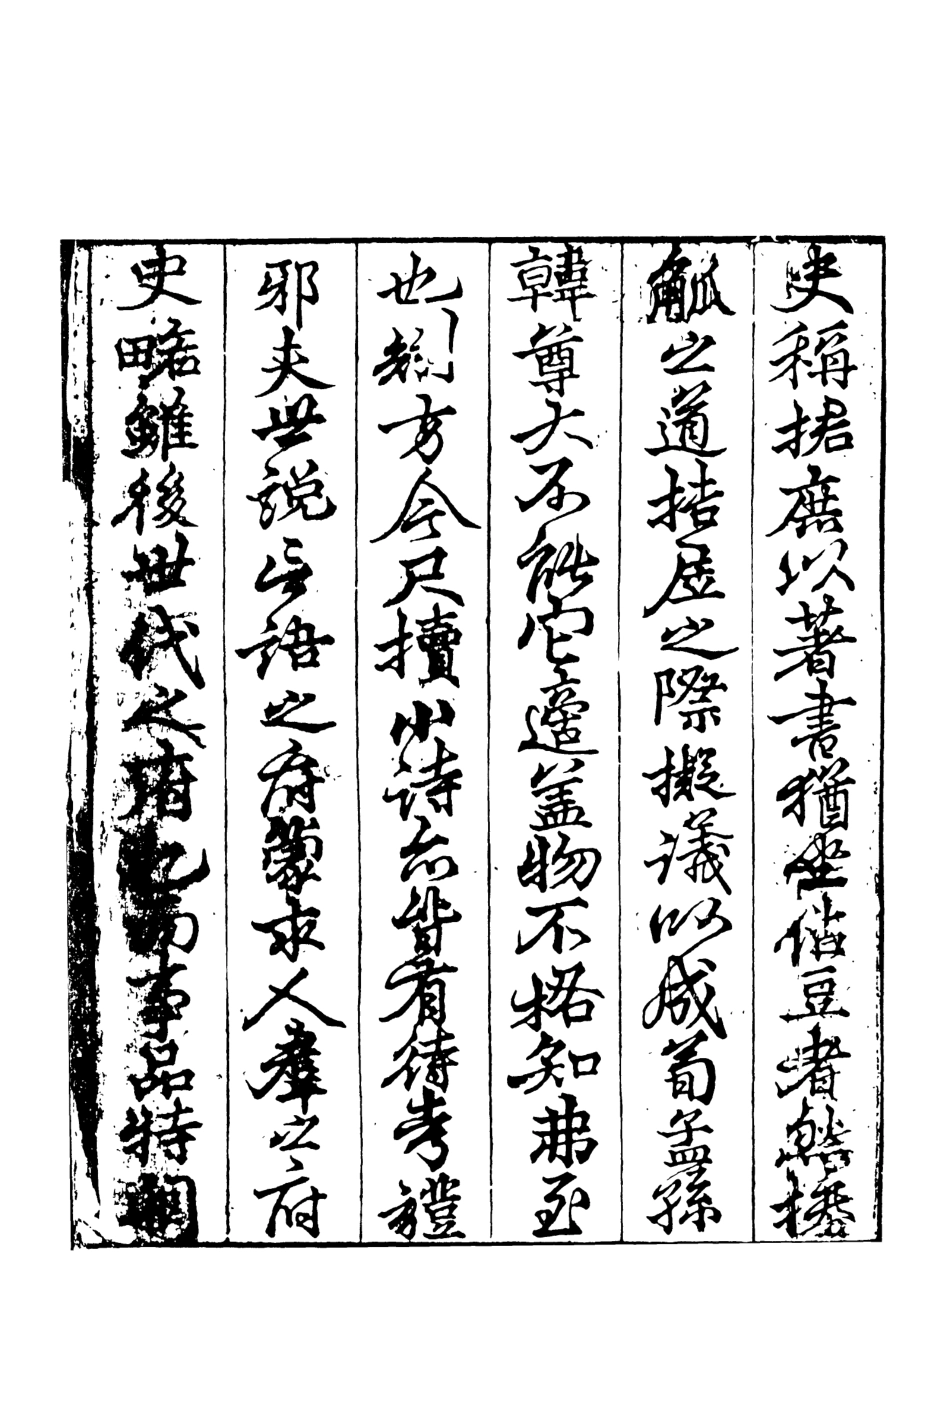 史稱捃庶以著書猶坐佔豆者然操
觚之道拮㞐之際擬議以成荀孟孫
韓尊大不能它適蓋物不格知弗至
也方今尺牘小詩亦皆有待考證
邪夫世說言語之府蒙求人羣之府
史略雖後世代之府也而事品特